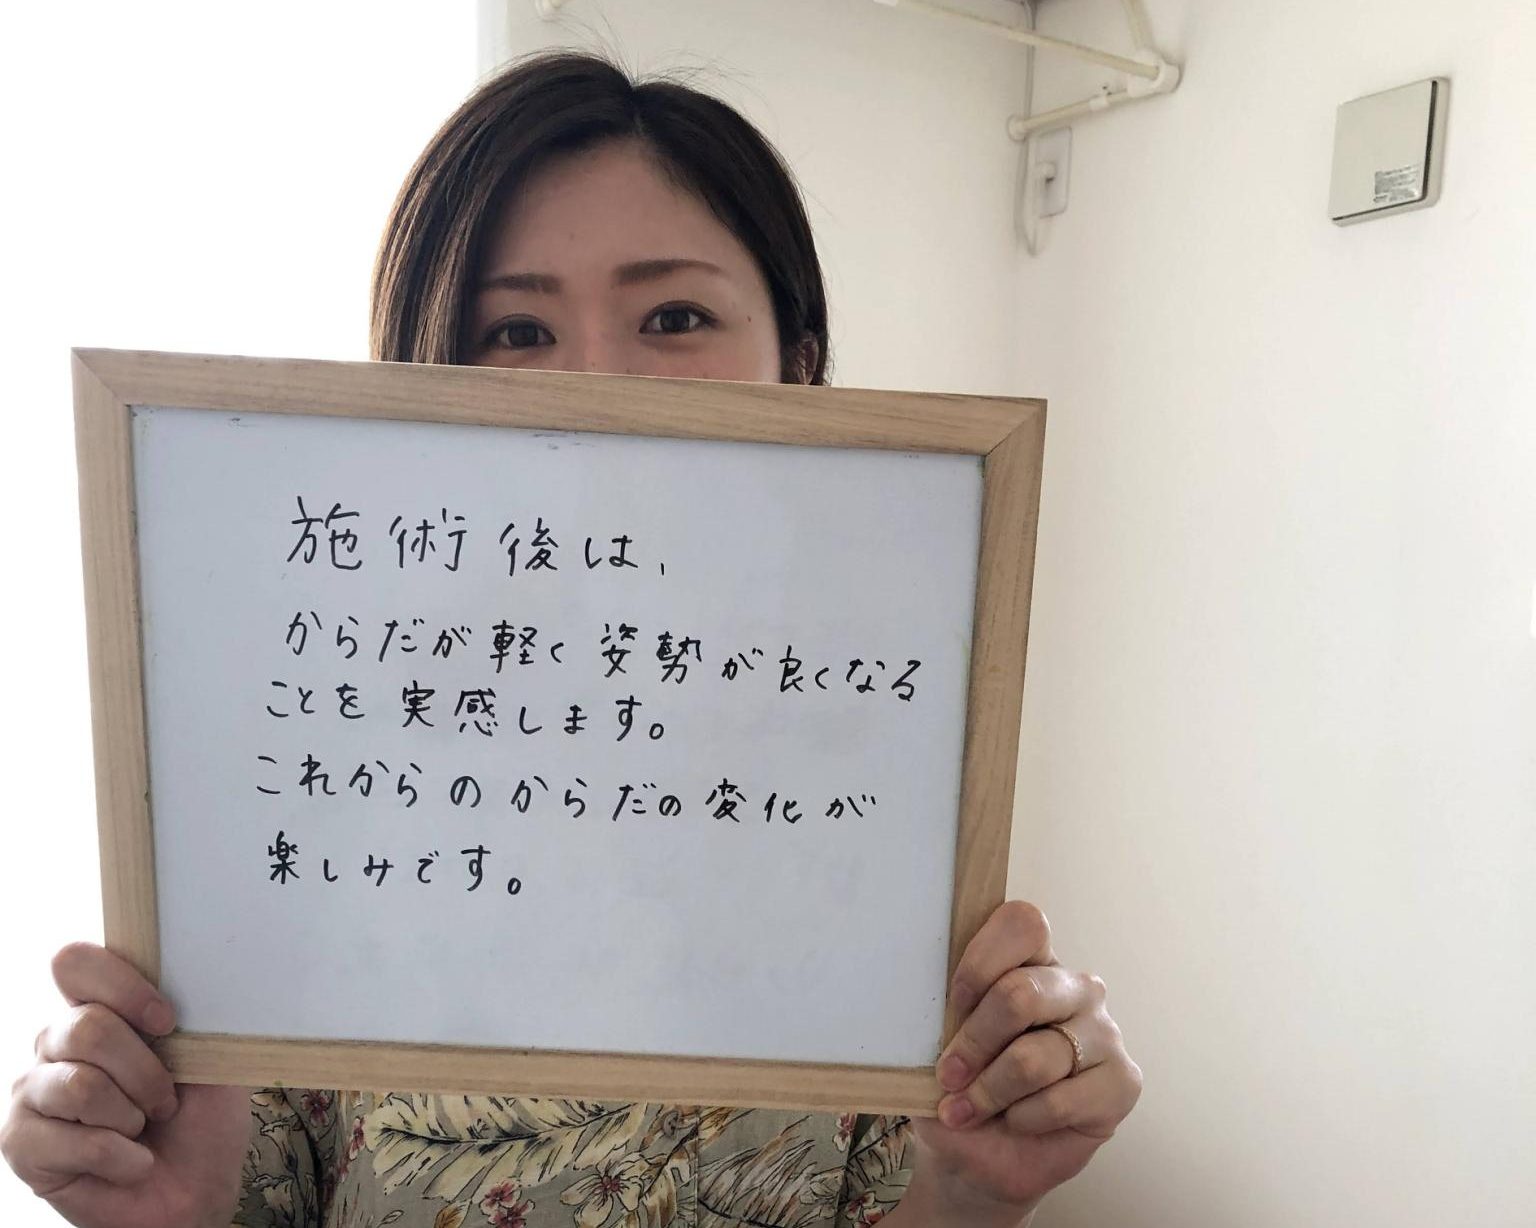 施術後は、
からだが軽く姿勢が良くなる
ことを実感します。
これからのからだの変化が
楽しみです。